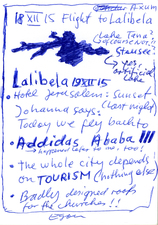 18 XII 15 Flight to Lalibela
Axum
Lake Tana?
Stausee?
yes!
artificial
Lake
Lalibela 19 XII 15
• Hotel Jerusalem: sunset
Johanna says: (last night)
Today we fly back to
• Addidas Ababa !!!
happened later to me, too!
• the whole city depends
on TOURISM (nothing else)
• Badly designed roofs
for the churches!!